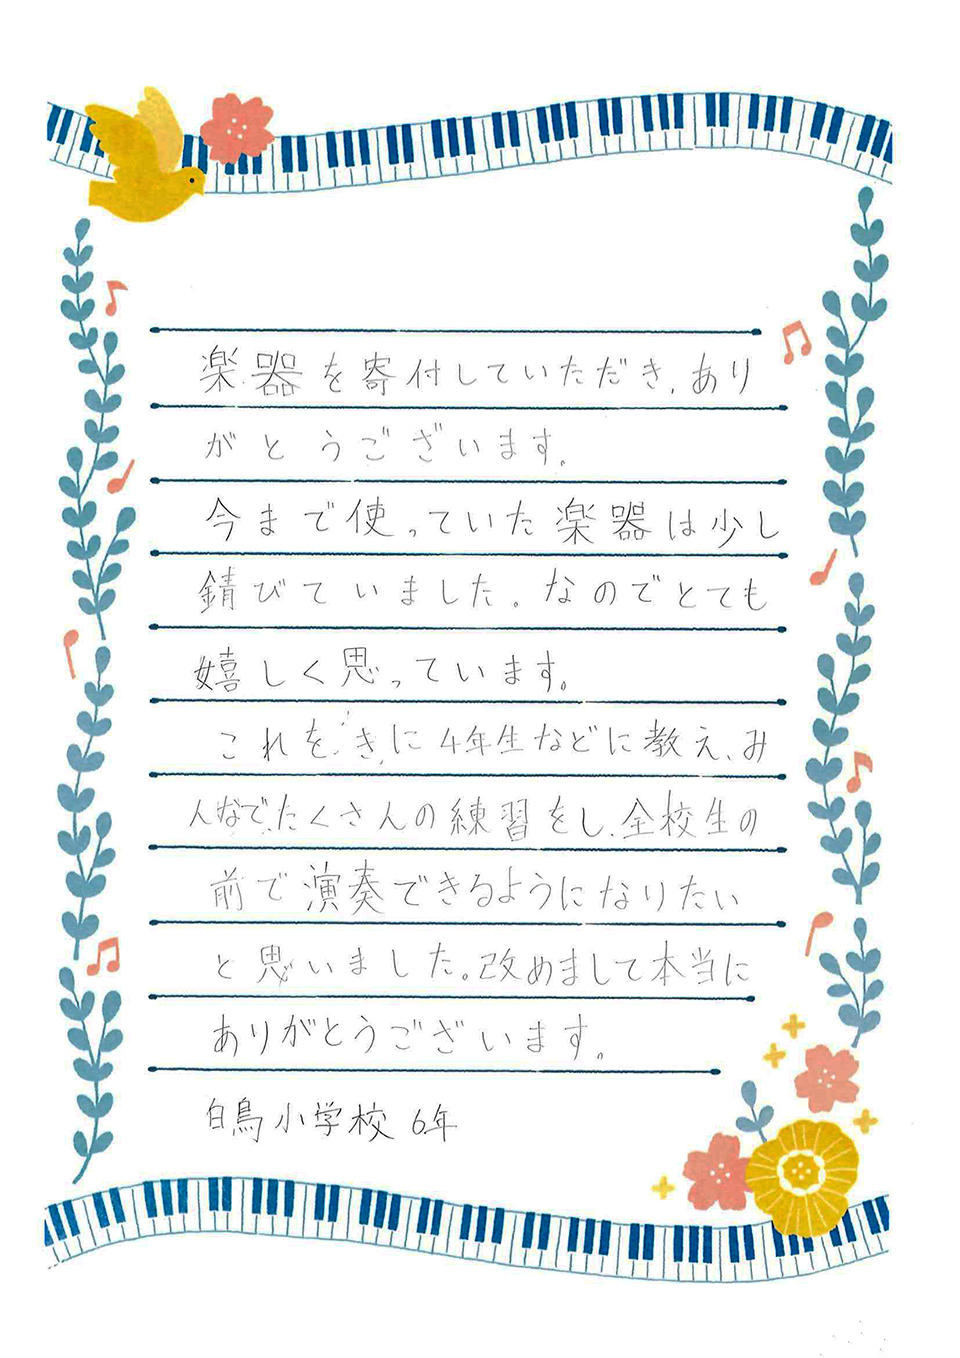 楽器を寄付していただき、あり
がとうございます。
今まで使っていた楽器は少し
錆びていました。なのでとても
嬉しく思っています。
これを、きに4年生などに教え、み
んなで、たくさんの練習をし、全校生の
前で演奏できるようになりたい
と思いました。改めまして本当に
ありがとうございます。
白鳥小学校6年